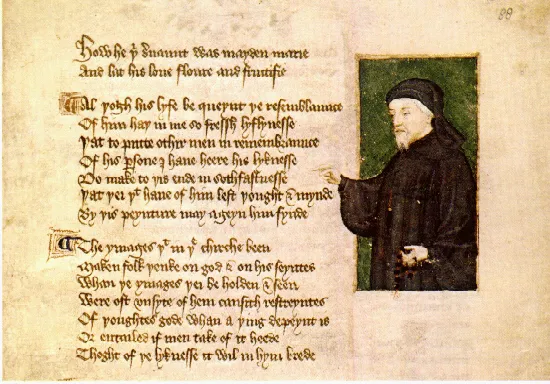 88
How he þ seruaunt was mayden marie
And lat his loue floure and fructifie
Al þogh his lyfe be queynt þe resemblaunce
Of him haþ in me so fressh lyflynesse
Þat to putte othir men in remembraunce
Of his persone I haue heere his lyknesse
Do make to þis ende in sothfastnesse
Þat þei þt haue of him left þought & mynde
By þis peynture may ageyn him fynde
The ymages þt in þe chirche been
Maken folk þenke on god & on his seyntes
Whan þe ymages þei be holden & seen
Were oft vnsyte of hem causith restreyntes
Of þoughtes gode whan a þing depeynt is
Or entailed if men take of it heede
Thoght of þe lyknesse it wil in hym brede